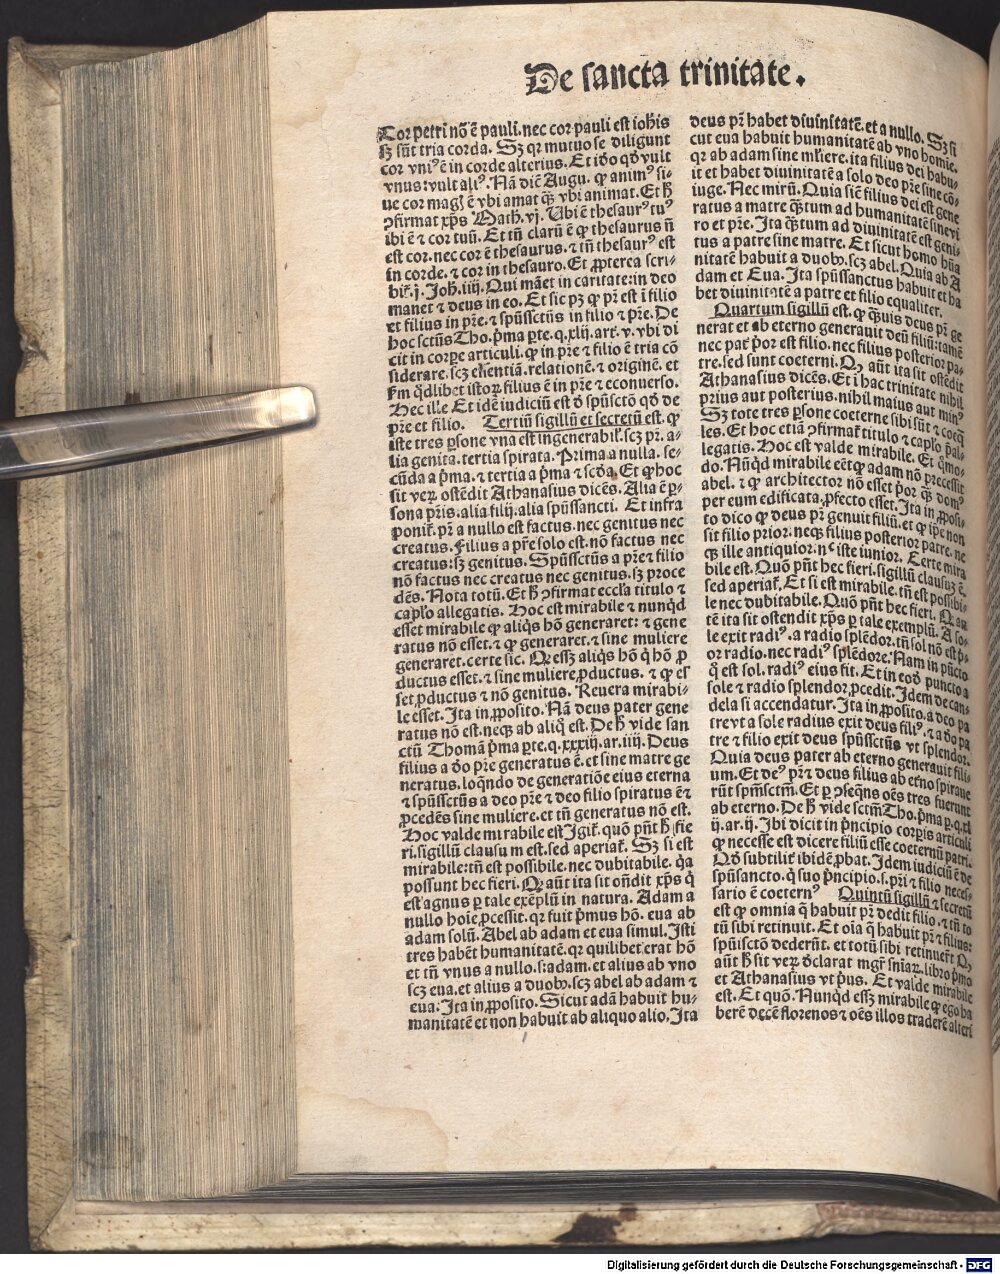 De sancta trinitate.
Cor petri nõ ē pauli. nec cor pauli est ioh̃is
sȝ sũt tria corda. Sȝ qr mutuo se diligunt
cor vniꝰ ē in corde alterius. Et iõo qõ vult
vnus: vult aliꝰ. Nã dicẽ Augu. ꝙ animꝰ si-
ue cor magꝭ ē vbi amat qȝ vbi animat. Et h̃
ꝯfirmat xp̃s Math. vj. Vbi ē thesaurꝰ tuꝰ
ibi ē ⁊ cor tuũ. Et tñ clarũ ē ꝙ thesaurus ñ
est cor. nec cor ē thesaurus. ⁊ tñ thesaurꝰ est
in corde. ⁊ cor in thesauro. Et ꝓpterea scri-
bit̃. j. Joh. iiij. Qui mãet in caritate: in deo
manet ⁊ deus in eo. Et sic pȝ ꝙ pr̃ est ĩ filio
et filius in pr̃e. ⁊ spũssctũs in filio ⁊ pr̃e. De
hoc sctũs Tho. p̃ma ꝑte. q. xlij. art. v. vbi di
cit in corꝑe articuli. ꝙ in pr̃e ⁊ filio ē tria cõ
siderare. scȝ essentiã. relationẽ. ⁊ originẽ. et
ẜm q̃dlibet istoꝝ filius ē in pr̃e ⁊ econuerso.
Hec ille Et idẽ iudiciũ est ð spũsctõ qõ de
pr̃e et filio. Tertiũ sigillũ et secretũ est. ꝙ
iste tres ꝑsone vna est ingenerabil̃. scȝ pr̃. a-
lia genita. tertia spirata. Prima a nulla. se-
cũda a p̃ma. ⁊ tertia a p̃ma ⁊ scõa. Et ꝙ hoc
sit veꝝ ostẽdit Athanasius dicẽs. Alia ē ꝑ-
sona pr̃is. alia filij. alia spũssancti. Et infra
ponit̃. pr̃ a nullo est factus. nec genitus nec
creatus. Filius a pr̃e solo est. nõ factus nec
creatus: sȝ genitus. Spũssctũs a pr̃e ⁊ filio
nõ factus nec creatus nec genitus. sȝ proce
dẽs. Nota totũ. Et h̃ ꝯfirmat eccl̃ia titulo ⁊
cap̃lo allegatis. Hoc est mirabile ⁊ nunqd
esset mirabile ꝙ aliqs hõ generaret: ⁊ gene
ratus nõ esset. ⁊ ꝙ generaret. ⁊ sine muliere
generaret. certe sic. Qr essȝ aliqs hõ q̃ hõ ꝓ
ductus esset. ⁊ sine muliere ꝓductus. ⁊ ꝙ es
set ꝓductus ⁊ nõ genitus. Reuera mirabi-
le esset. Ita in ꝓposito. Nã deus pater gene
ratus nõ est. neqȝ ab aliq̃ est. De h̃ vide san
ctũ Thomã p̃ma ꝑte. q. xxxiij. ar. iiij. Deus
filius a ðo pr̃e generatus ē. et sine matre ge
neratus. loq̃ndo de generatiõe eius eterna
⁊ spũssctũs a deo pr̃e ⁊ deo filio spiratus ē ⁊
ꝓcedẽs sine muliere. et tñ generatus nõ est.
Hoc valde mirabile est Igit̃. quõ pñt h̃ fie
ri. sigillũ clausu m est. sed aperiat̃. Sȝ si est
mirabile: tñ est possibile. nec dubitabile. q̃a
possunt hec fieri. Qr aũt ita sit oñdit xp̃s q̃
est agnus ꝑ tale exẽplũ in natura. Adam a
nullo hoĩe ꝓcessit. qr fuit p̃mus hõ. eua ab
adam solũ. Abel ab adam et eua simul. Isti
tres habẽt humanitatẽ. qr quilibet erat hõ
et tñ vnus a nullo. s: adam. et alius ab vno
scȝ eua. et alius a duobꝰ. scȝ abel ab adam ⁊
eua: Ita in ꝓposito. Sicut adã habuit hu-
manitatẽ et non habuit ab aliquo alio. Ita
deus pr̃ habet diuinitatẽ. et a nullo. Sȝ si
cut eua habuit humanitatẽ ab vno homĩe.
qr ab adam sine mliere. ita filius dei habu-
it et habet diuinitatẽ a solo deo pr̃e sine cõ-
iuge. Nec mirũ. Quia siẽ filius dei est gene
ratus a matre qȝtum ad humanitatẽ sine vi
ro et pr̃e. Ita qȝtum ad diuinitatẽ est geni-
tus a patre sine matre. Et sicut homo hũa
nitatẽ habuit a duobꝰ. scȝ abel. Quia ab A
dam et Eua. Ita spũssanctus habuit et ha
bet diuinitatẽ a patre et filio equaliter.
Quartum sigillũ est. ꝙ qȝuis deus pr̃ ge
nerat et ab eterno generauit deũ filiũ: tamẽ
nec pat̃ p̃or est filio. nec filius posterior pa-
tre. sed sunt coeterni. Q, aũt ita sit ostẽdit
Athanasius dicẽs. Et ĩ hac trinitate nihil
prius aut posterius. nihil maius aut minꝰ
Sȝ tote tres ꝑsone coeterne sibi sũt ⁊ coeq̃
les. Et hoc etiã ꝯfirmat̃ titulo ⁊ cap̃lo p̃al-
legatis. Hoc est valde mirabile. Et q̃mo-
do. Nũqd mirabile eẽt ꝙ adam nõ precessit
abel. ⁊ ꝙ architector nõ esset p̃or qȝ domꝰ
per eum edificata. ꝓfecto esset. Ita in ꝓposi-
to dico ꝙ deus pr̃ genuit filiũ. et ꝙ ip̃e non
sit filio prior. neqȝ filius posterior patre. ne
qȝ ille antiquior. nᶜ iste iunior. Certe mira
bile est. Quõ pñt hec fieri. sigillũ clausuȝ ē.
sed aperiat̃. Et si est mirabile. tñ est possibi-
le nec dubitabile. Quõ pñt hec fieri. Q, au
tẽ ita sit ostendit xp̃s ꝑ tale exemplũ. A so-
le exit radiꝰ. a radio splẽdor. tñ sol nõ est p̃-
or radio. nec radiꝰ splẽdore. Nam in pũcto
q̃ est sol. radiꝰ eius fit. Et in eoõ puncto a
sole ⁊ radio splendor ꝓcedit. Idem de can-
dela si accendatur. Ita in ꝓposito. a deo pa
tre vt a sole radius exit deus filiꝰ. ⁊ a ðo pa
tre ⁊ filio exit deus spũssctũs vt splendor.
Quia deus pater ab eterno generauit fili-
um. Et deꝰ pr̃ ⁊ deus filius ab etno spiraue
rũt spm̃sctm̃. Et ꝑ ꝯseq̃ns oẽs tres fuerunt
ab eterno. De h̃ vide sctm̃ Tho. p̃ma p. q. xl
ij. ar. ij. Ibi dicit in p̃ncipio corꝑis articuli
ꝙ necesse est dicere filiũ esse coeternũ patri.
Qõ subtilit̃ ibidẽ ꝓbat. Idem iudiciũ ē de
spũsancto. q̃ suo p̃ncipio. s. pr̃i ⁊ filio neces-
sario ē coeternꝰ Quintũ sigillũ ⁊ secretũ
est ꝙ omnia q̃ habuit pr̃ dedit filio. ⁊ tñ to
tũ sibi retinuit. Et oĩa q̃ habuit pr̃ ⁊ filius:
spũisctõ dederũt. et totũ sibi retinuer̃t Q,
aũt h̃ sit veꝝ ðclarat mgr̃ sñiaꝝ. libro p̃mo
et Athanasius vt p̃us. Et valde mirabile
est. Et quõ. Nunqd essȝ mirabile ꝙ ego ha
berẽ decẽ florenos ⁊ oẽs illos traderẽ alteri
Digitalisierung gefördert durch die Deutsche Forschungsgemeinschaft - DFG